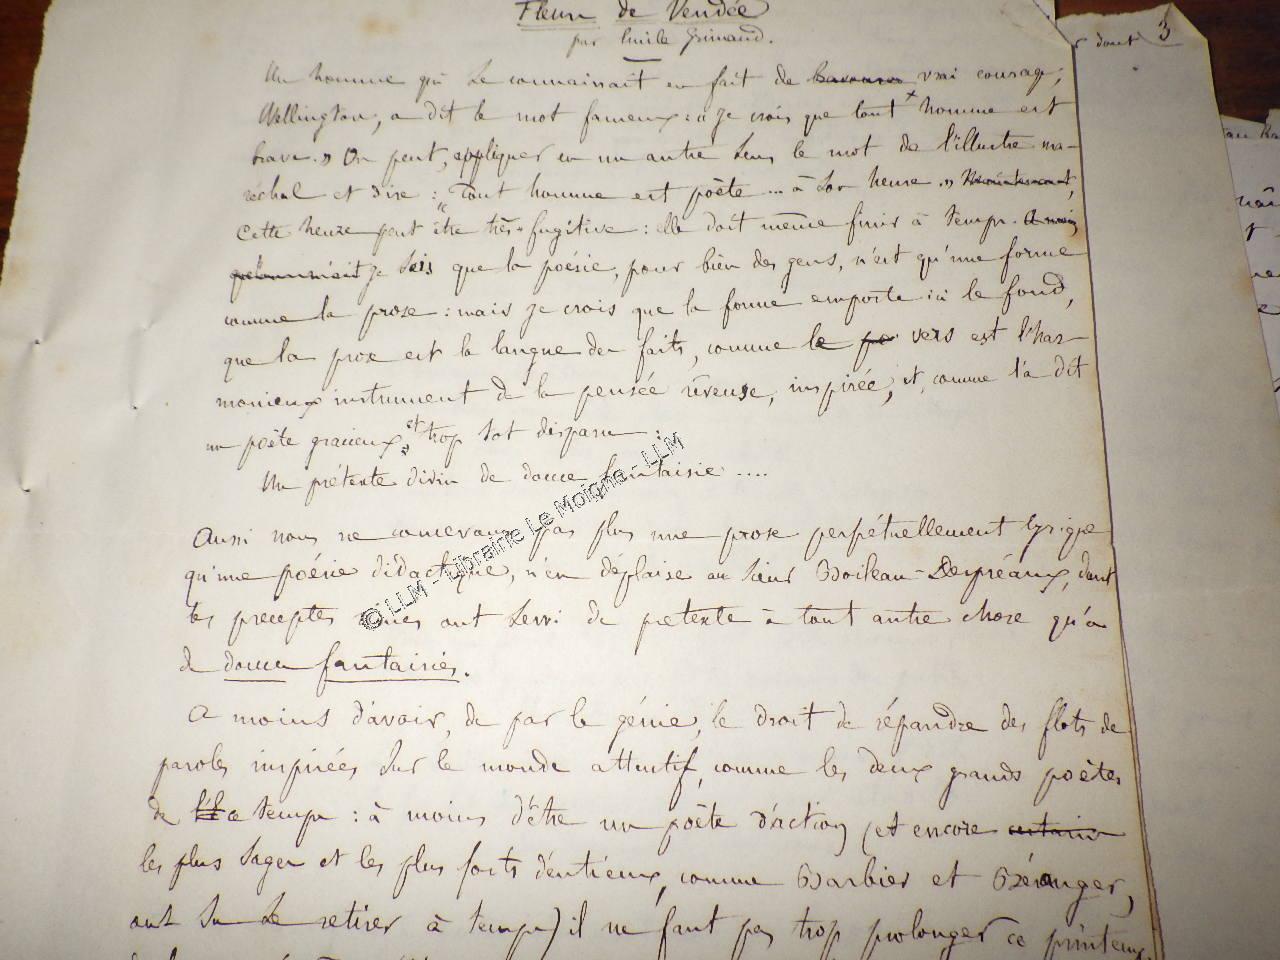 Fleurs de Vendée
par Emile Grimaud.
Un homme qui se connaissait en fait de bravoure vrai courage,
Wellington, a dit le mot fameux : « Je crois que tout homme est
brave. » On peut, appliquer en un autre sens le mot de l'illustre ma-
réchal et dire : « Tout homme est poète ... à son heure. »
Cette heure peut être très-fugitive : elle doit même finir à temps.
je sais que la poésie, pour bien des gens, n'est qu'une forme
comme la prose : mais je crois que la forme emporte ici le fond,
que la prose est la langue des faits, comme le vers est l'har-
monieux instrument de la pensée rêveuse, inspirée, et, comme l'a dit
un poète gracieux et trop tôt disparu :
Un prétexte divin de douce fantaisie ....
Aussi nous ne concevons pas plus une prose perpétuellement lyrique
qu'une poésie didactique, n'en déplaise au sieur Boileau-Despréaux, dont
les preceptes rimés ont servi de pretexte à tout autre chose qu'à
de douces fantaisies.
A moins d'avoir, de par le génie, le droit de répandre des flots de
paroles inspirées sur le monde attentif, comme les deux grands poètes
de ce temps : à moins d'être un poète d'action (et encore
les plus sages et les plus forts d'entr'eux, comme Barbier et Béranger,
ont su se retirer à temps) il ne faut pas trop prolonger ce printemps
© LLM - Librairie Le Moigne - LLM
3
dont